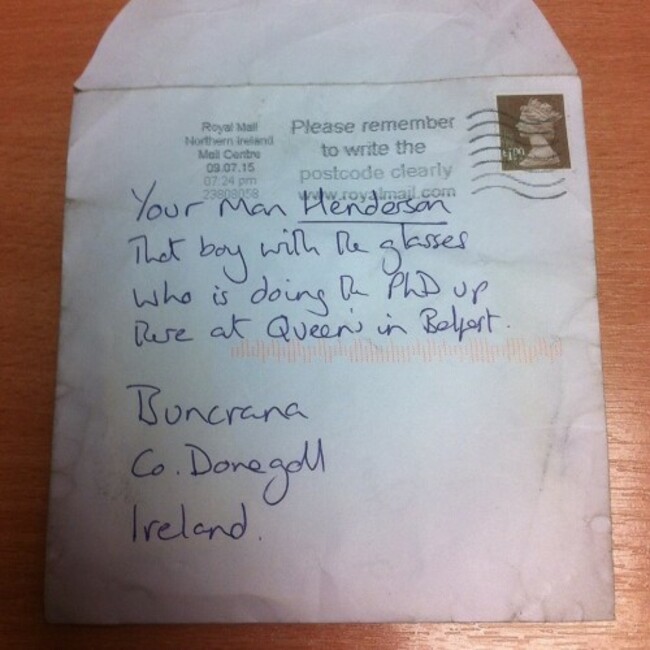 Royal Mail
Northern Ireland
Mail Centre
09.07.15
07:24 pm
23808058
Please remember
to write the
postcode clearly
www.royalmail.com
£1.00
Your Man Henderson
That boy with the glasses
who is doing the PhD up
there at Queen's in Belfast.
Buncrana
Co. Donegall
Ireland.